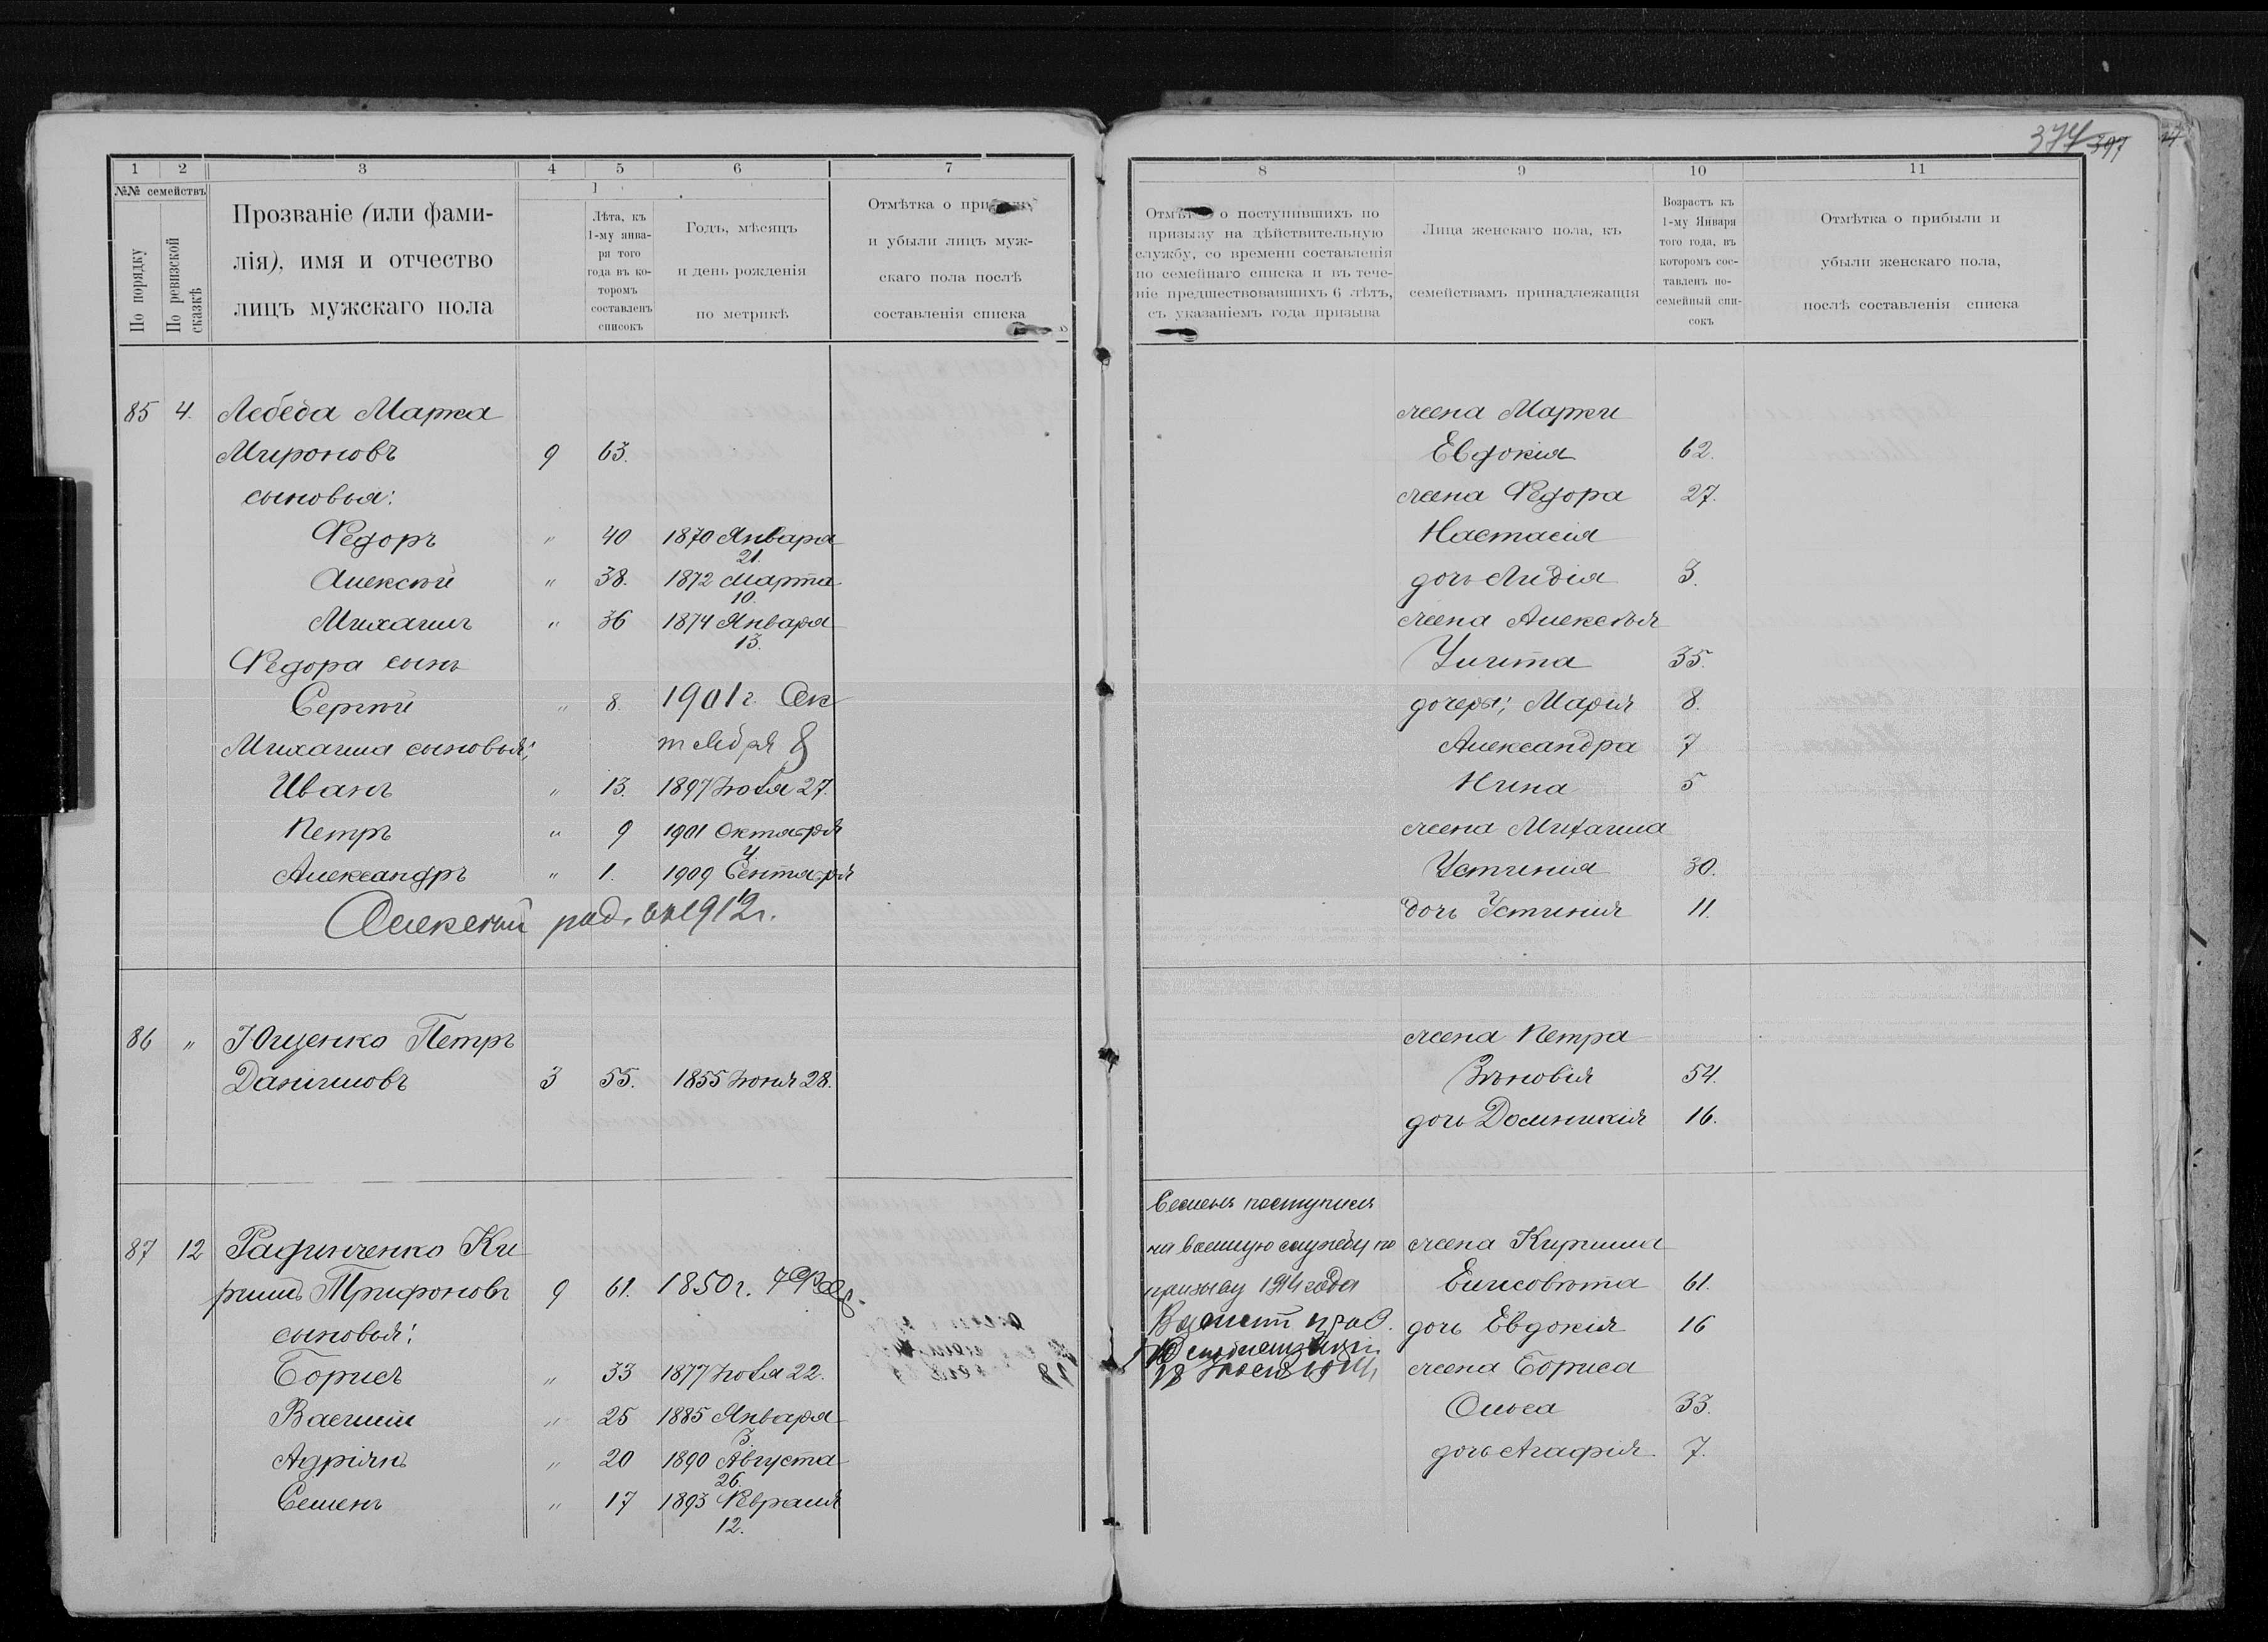 374 397
1 2 3 4 5 6 7
№№ семействъ
По порядку
По ревизской сказкѣ
Прозваніе (или фами-
лія), имя и отчество
лицъ мужскаго пола
Лѣта, къ
1-му янва-
ря того
года въ ко-
торомъ
составленъ
списокъ
Годъ, мѣсяцъ
и день рожденія
по метрикѣ
Отмѣтка о
и убыли лицъ муж-
скаго пола послѣ
составленія списка
85 4. Лебеда Марка
Мироновъ 9 63.
сыновья:
Ѳедоръ " 40 1870 Января
21.
Алексѣй " 38. 1872 Марта
10.
Михаилъ " 36 1874 Января
13.
Ѳедора сынъ
Сергѣй " 8. 1901 г. Ок
тября 8
Михаила сыновья:
Иванъ " 13. 1897 Іюля 27.
Петръ " 9 1901 Октября
4.
Александръ " 1. 1909 Сентября
19
Алексѣй род. 1912 г.
86 " Ющенко Петръ
Даниловъ 3 55. 1855 Іюня 28.
87 12 Радинченко Ки
рилъ Трифоновъ 9 61. 1850 г. 7 Фев.
сыновья:
Борисъ " 33 1877 Іюля 22.
Василій " 25 1885 Января
3.
Адріянъ " 20 1890 Августа
26.
Семенъ " 17 1893 Февраля
12.
8 9 10 11
Отмѣтка о поступившихъ по
призыву на дѣйствительную
службу, со времени составленія
по семейнаго списка и въ тече-
ніе предшествовавшихъ 6 лѣтъ,
съ указаніемъ года призыва
Лица женскаго пола, къ
семействамъ принадлежащія
Возрастъ къ
1-му Января
того года, въ
которомъ сос-
тавленъ по-
семейный спи-
сокъ
Отмѣтка о прибыли и
убыли женскаго пола,
послѣ составленія списка
жена Марки
Евдокія 62.
жена Ѳедора 27.
Настасія
дочь Лидія 3.
жена Алексѣя
Улита 35.
дочери: Марія 8.
Александра 7
Нина 5
жена Михаила
Устинія 30.
дочь Устинія 11.
жена Петра
Зѣновія 54.
дочь Домникія 16.
Семенъ поступилъ
на военную службу по
призыву 1914 года
Василій
18 1914
жена Кирилла
Елисовѣта 61.
дочь Евдокія 16
жена Бориса
Ольга 33.
дочь Агафія 7.